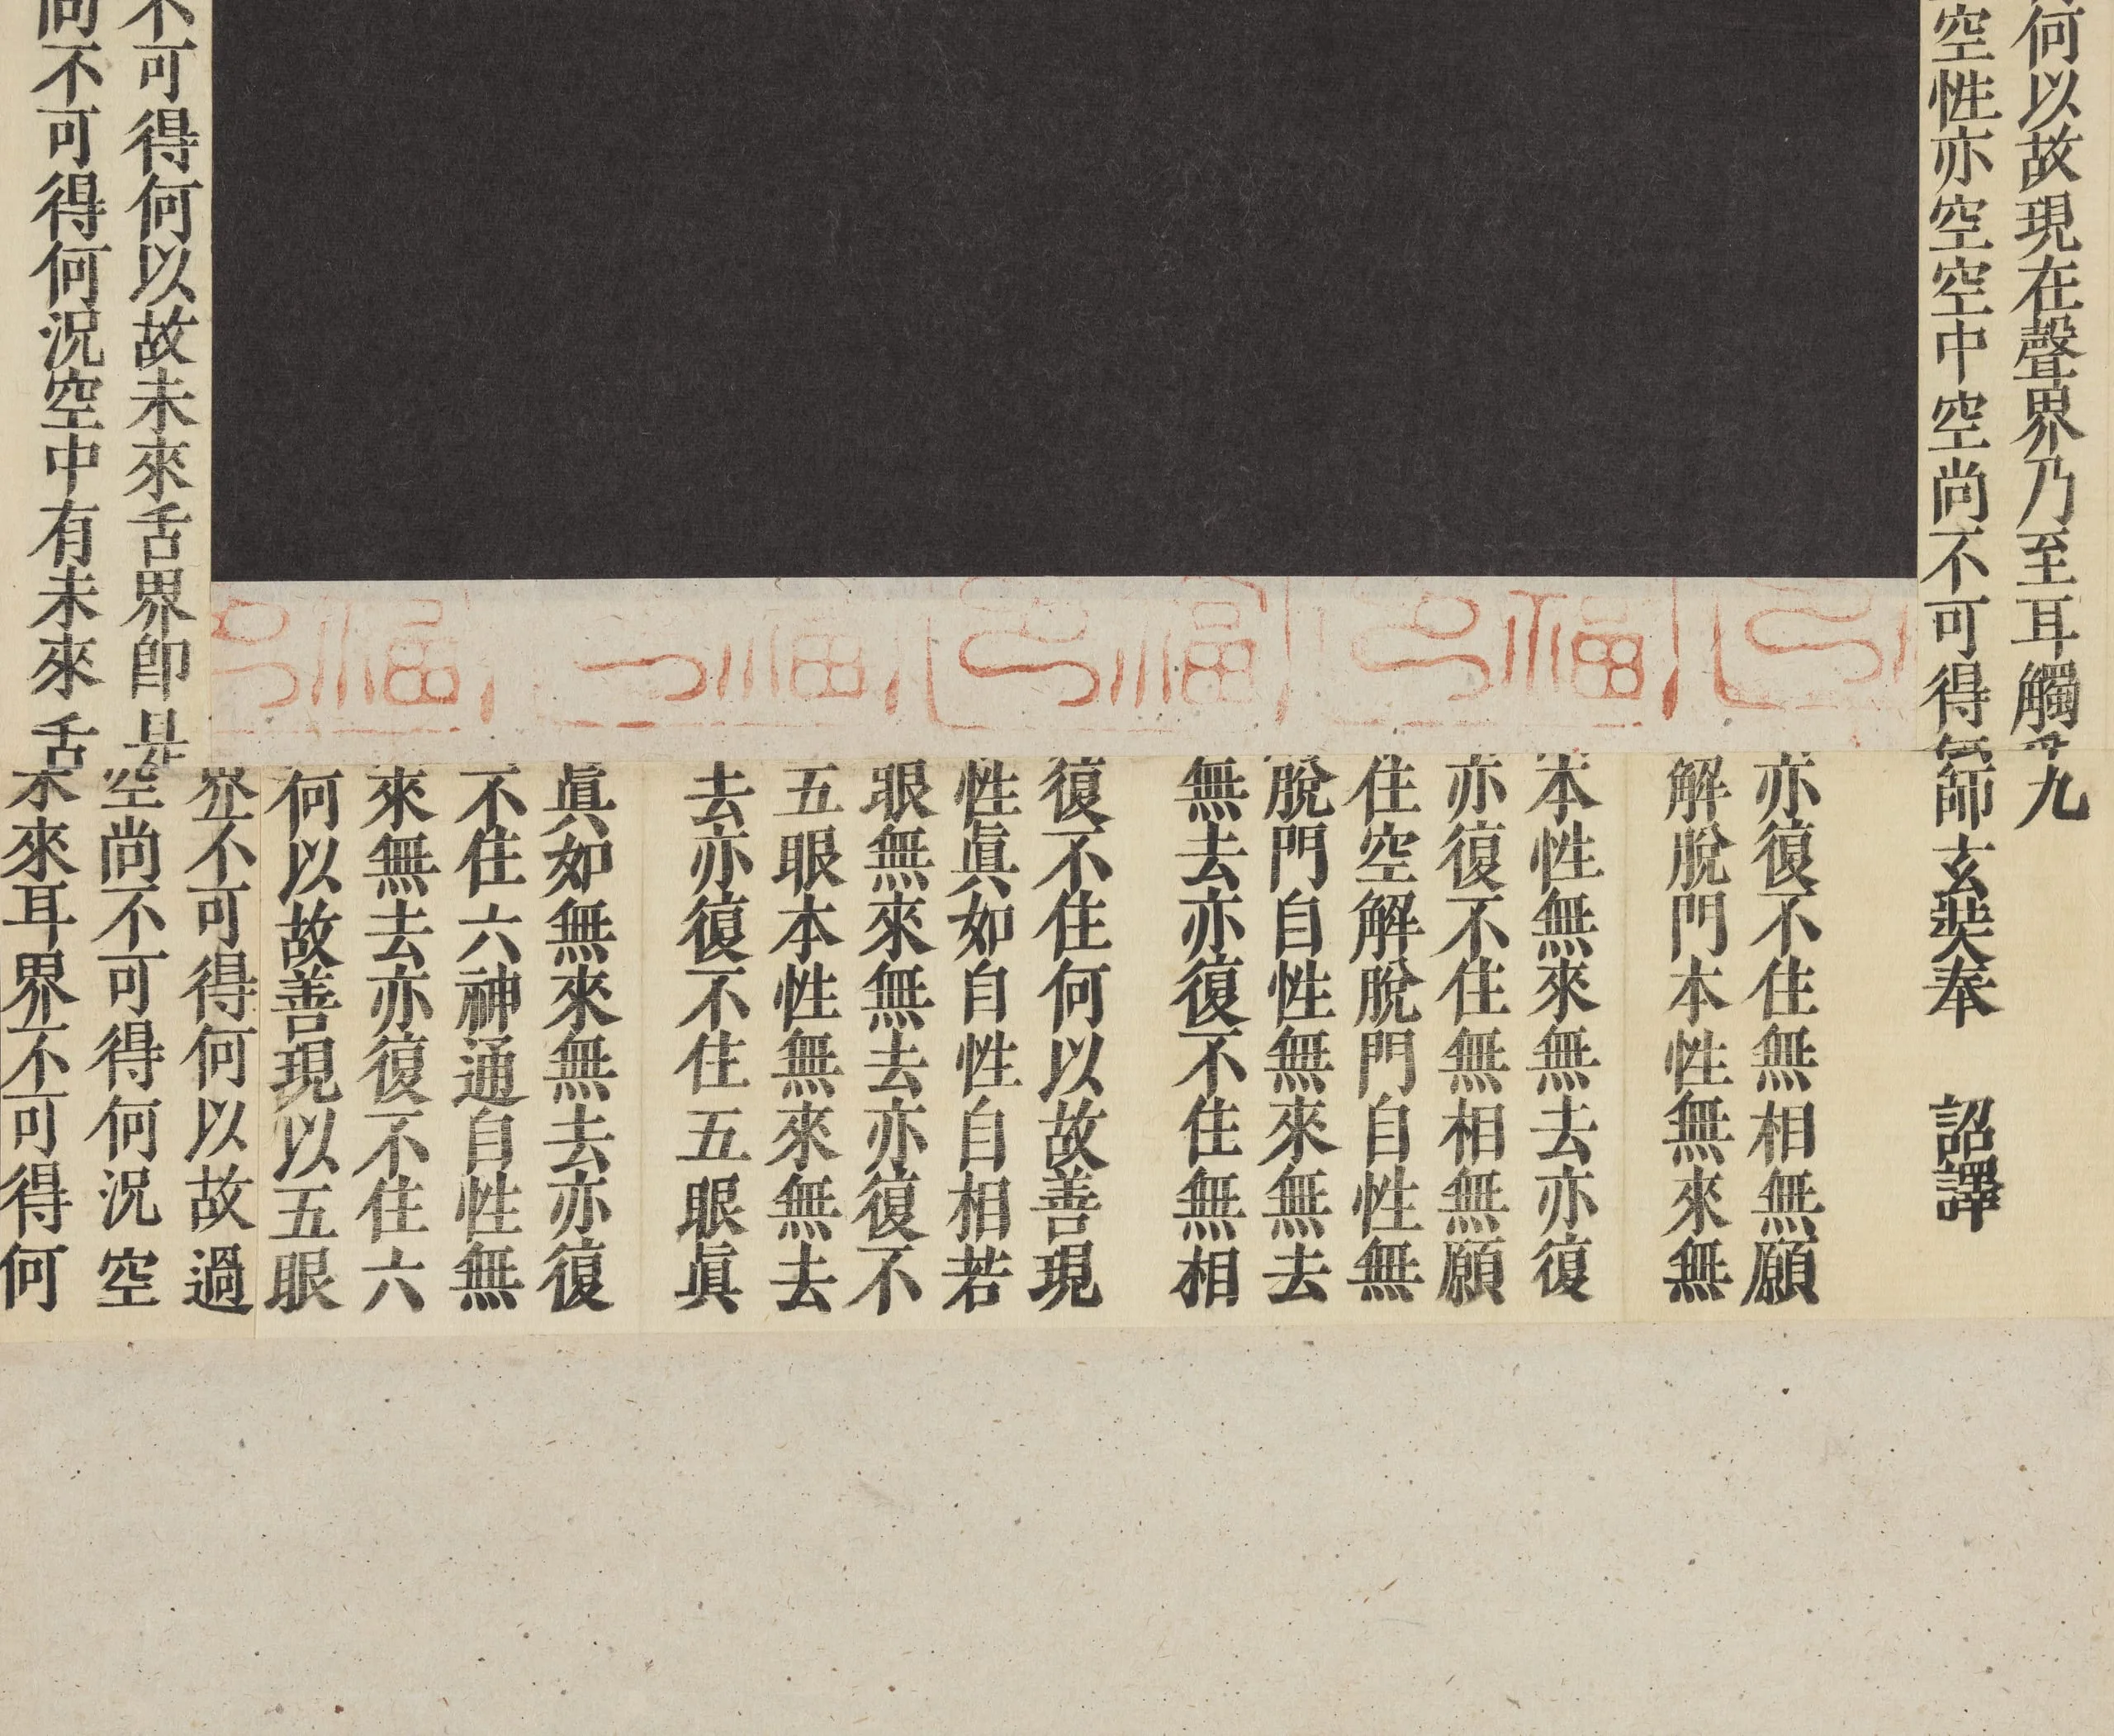 何以故現在聲界乃至耳觸
九
空性亦空空中空尚不可得
師玄奘奉 詔譯
亦復不住無相無願
解脫門本性無來無
本性無來無去亦復
亦復不住無相無願
住空解脫門自性無
脫門自性無來無去
無去亦復不住無相
復不住何以故善現
性真如自性自相若
眼無來無去亦復不
五眼本性無來無去
去亦復不住五眼真
真如無來無去亦復
不住六神通自性無
來無去亦復不住六
何以故善現以五眼
不可得何以故未來舌界即是
尚不可得何況空中有未來舌
不可得何以故過
空尚不可得何況空
來耳界不可得何
福
福
福
福